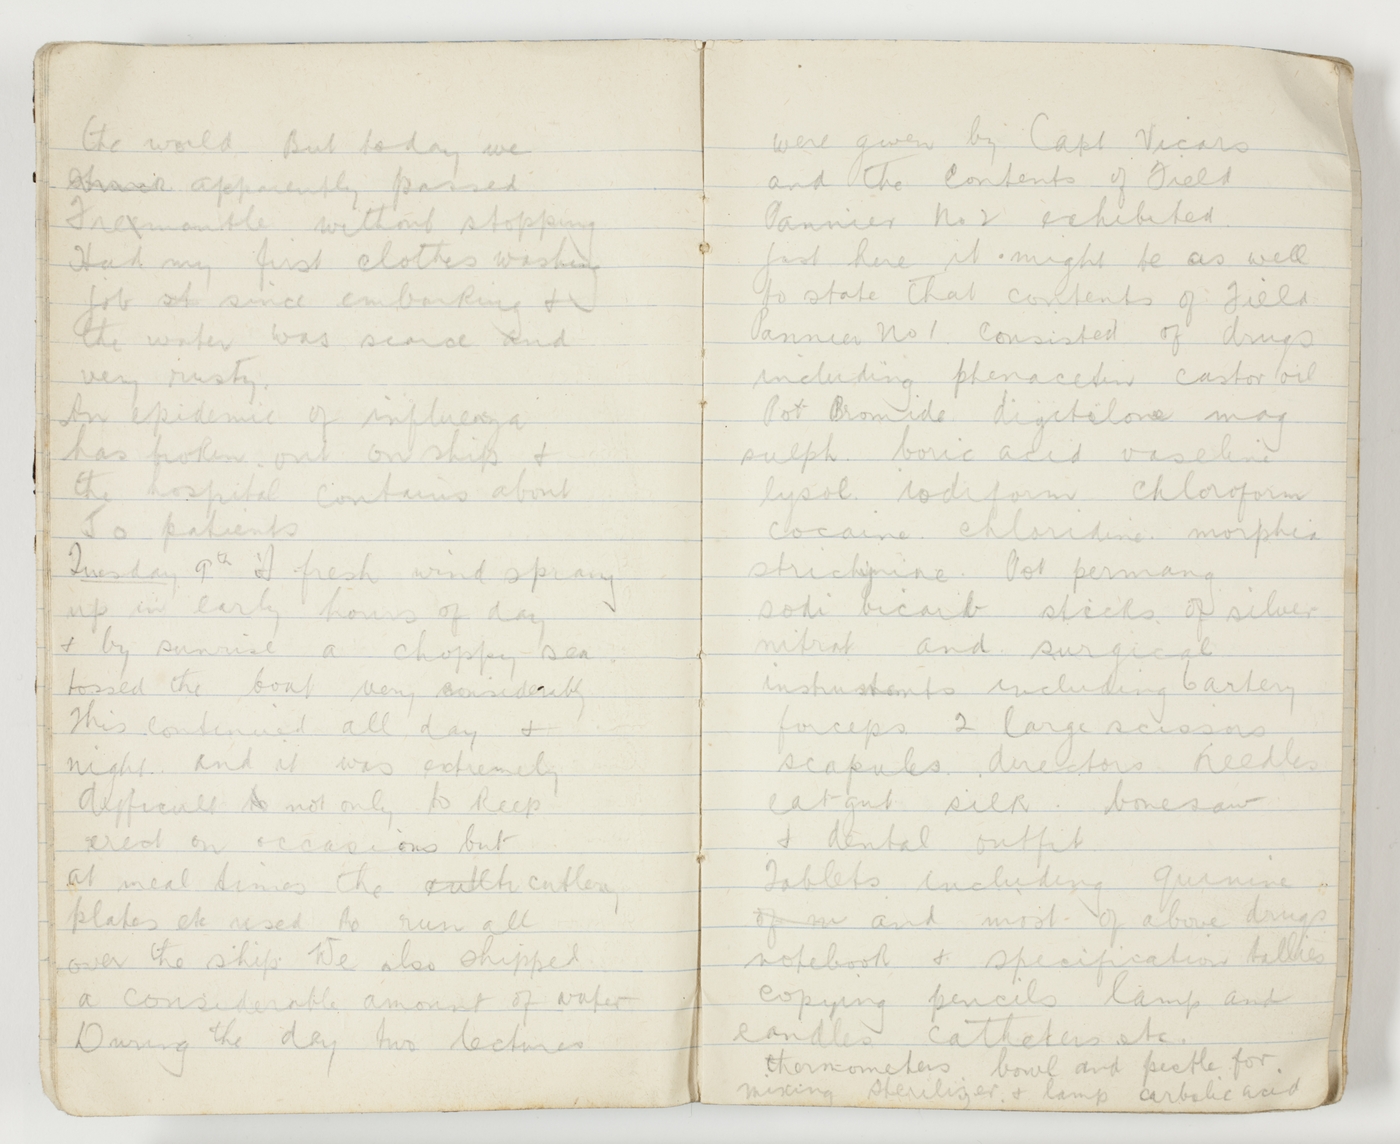 the world But today we
apparently passed
Freemantle without stopping
Had my first clothes washing
job st since embarking &
the water was scarce and
very rusty.
An epidemic of influenza
has broken out on ship &
the hospital contains about
50 patients
Tuesday 9th A fresh wind sprang
up in early hours of day
& by sunrise a choppy sea
tossed the boat very considerably
This continued all day &
night and it was extremely
difficult to not only to keep
erect on occasions but
at meal times the cutlery
plates etc used to run all
over the ship We also shipped
a considerable amount of water
During the day two lectures
were given by Capt Vicars
and the contents of Field
Pannier No 2 exhibited
Just here it might be as well
to state that contents of Field
Pannier No 1 consisted of drugs
including phenacetin castor oil
Pot Bromide digitalone mag
sulph boric acid vaseline
lysol iodiform chloroform
cocaine chloridine morphia
strichnine Pot permang
sodi bicarb sticks of silver
nitrat and surgical
instruments including 6 artery
forceps 2 large scissors
scapules directors needles
catgut silk bonesaw
& dental outfit
Tablets including quinine
and most of above drugs
notebook & specification tallies
copying pencils lamp and
candles catheters etc.
thermometers bowl and pestle for
mixing sterilizer & lamp carbolic acid